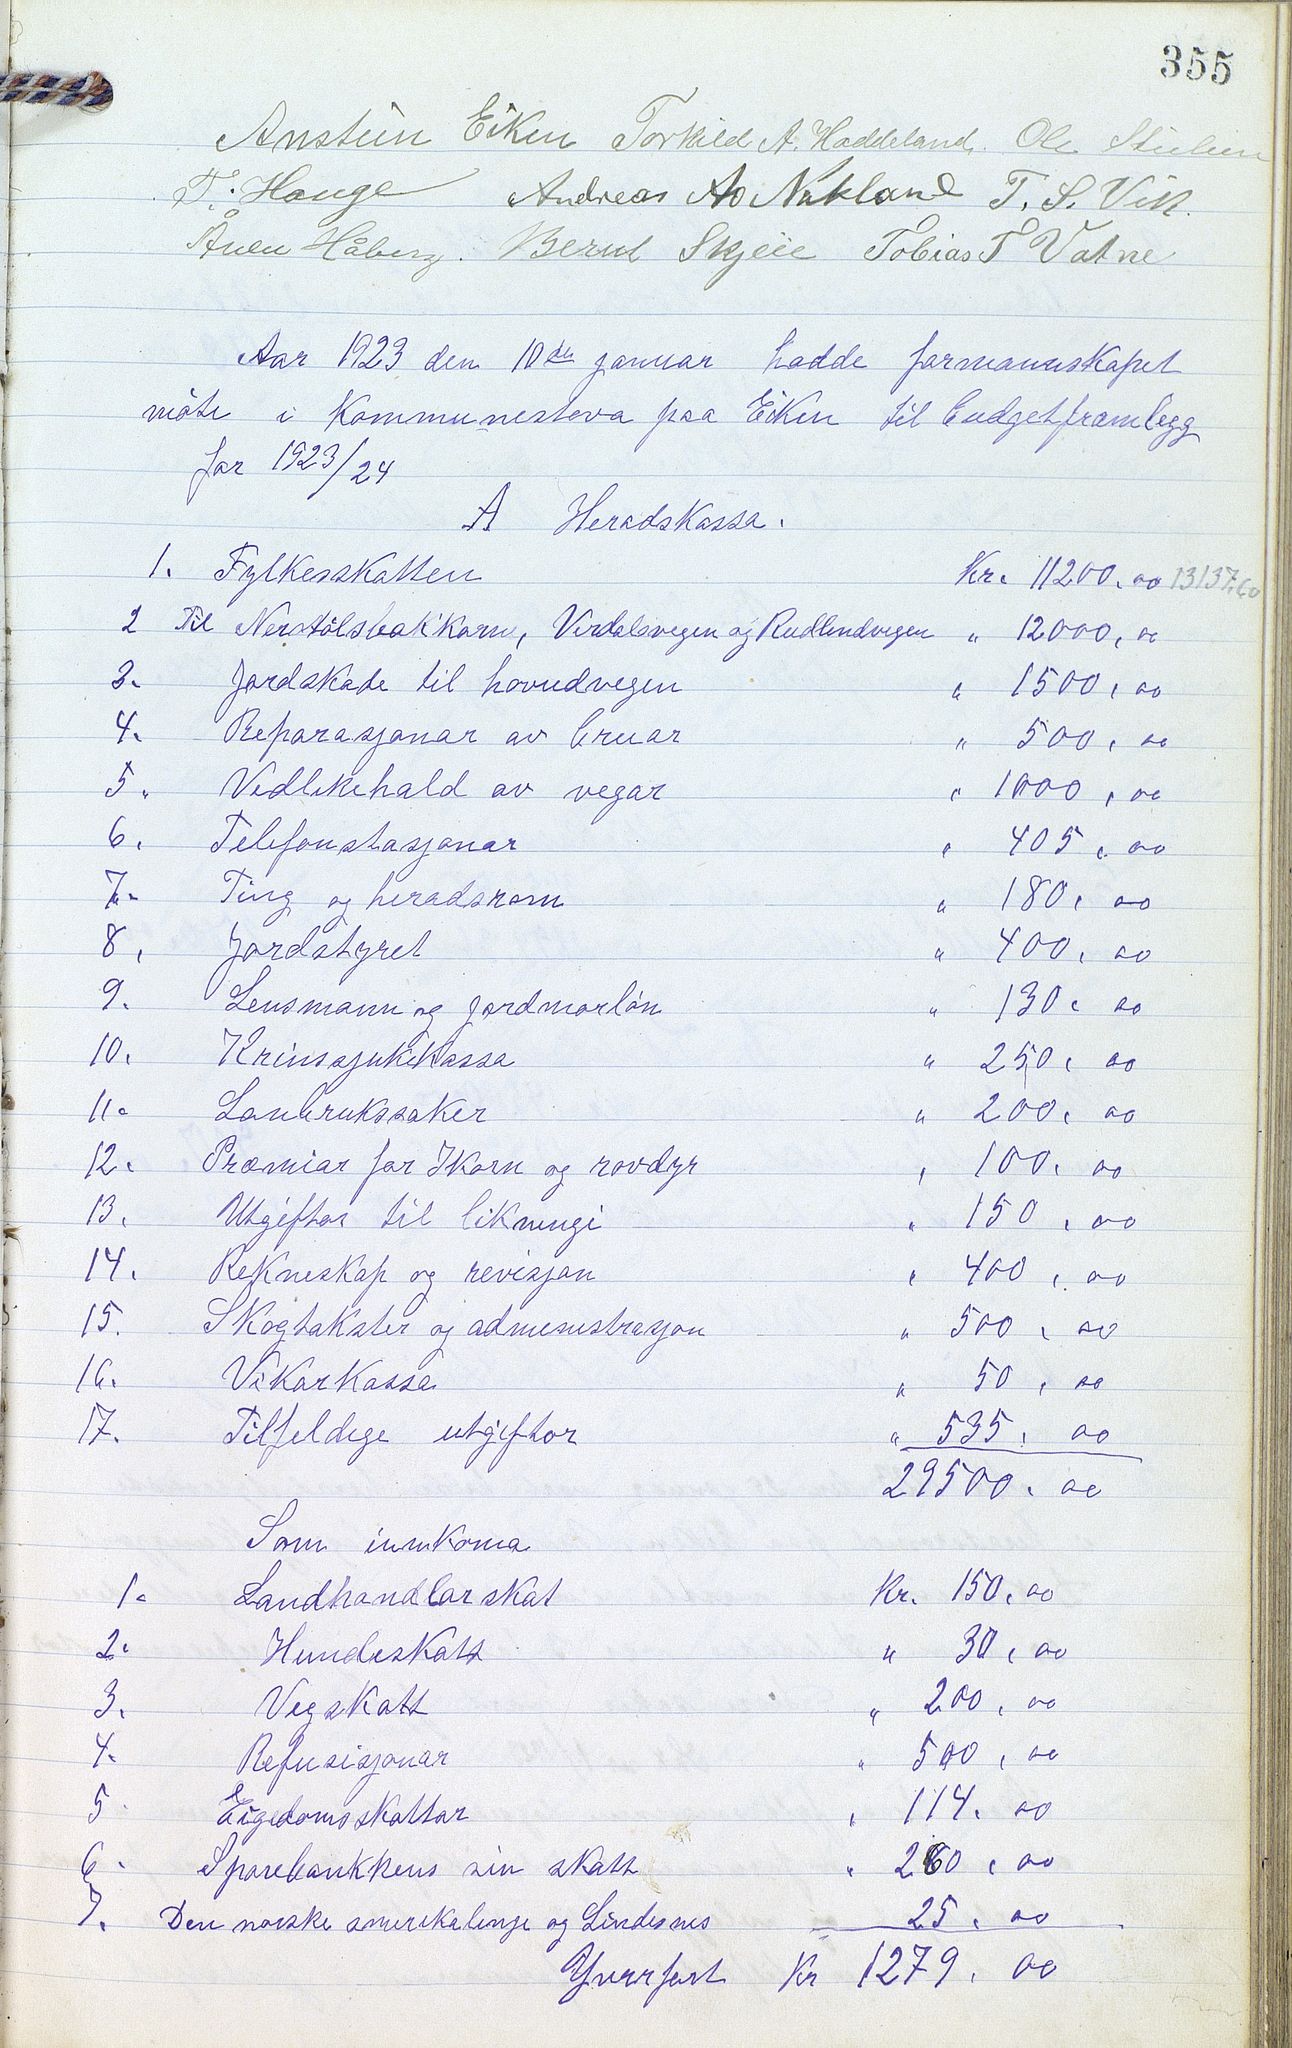 355
Anstein Eiken Torkild A. Haddeland. Ole Stulien
T. Hauge Andreas Ao Nakland T. S. Vik.
Ånen Håberg. Bernt Skjeie Tobias T Vatne
Aar 1923 den 10de januar hadde formannskapet
möte i Kommunestova paa Eiken til budgetframlegg
for 1923/24
A Heradskassa.
1. Fylkesskatten Kr. 11200.00 13137.60
2 Til Nerstölsbakkarne, Virdalsvegen og Rudlendvegen " 12000,00
3. Jordskade til hovudvegen " 1500,00
4. Reparasjonar av bruar " 500,00
5. Vedlikehald av vegar " 1000,00
6. Telefonstasjonar " 405,00
7. Ting og heradsrom " 180,00
8, Jordstyret " 400,00
9. Lensmann og jordmorlön " 130,00
10. Krinssjukekassa " 250,00
11. Lanbrukssaker " 200,00
12. Præmiar for Ikorn og rovdyr " 100,00
13. Utgiftor til likningi " 150,00
14. Rekneskap og revisjon " 400,00
15. Skogtakster og administrasjon " 500,00
16. Vikarkassa " 50,00
17. Tilfeldige utgiftor " 535,00
29500.00
Som innkoma
1. Landhandlarskat Kr. 150.00
2. Hundeskatt " 30,00
3. Vegskatt " 200,00
4. Refusisjonar " 500,00
5 Eigedomsskattar " 114.00
6. Sparebankkens sin skatt " 260,00
7. Den norske amerikalinje og Lindesnes 25.00
Yverfört Kr 1279.00